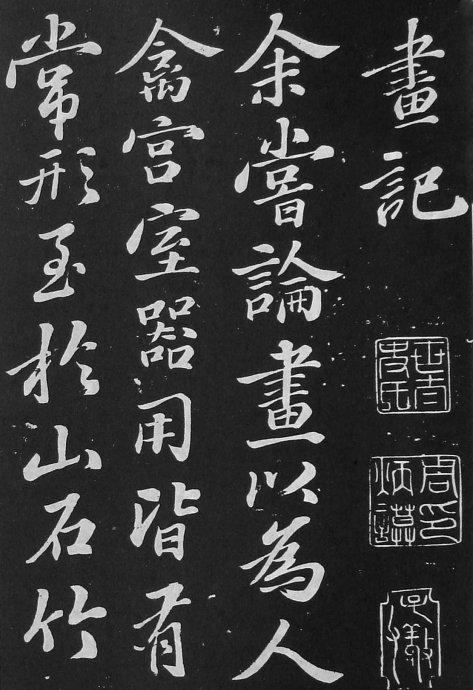 畫記
余嘗論畫以為人
禽宮室器用皆有
常形至於山石竹